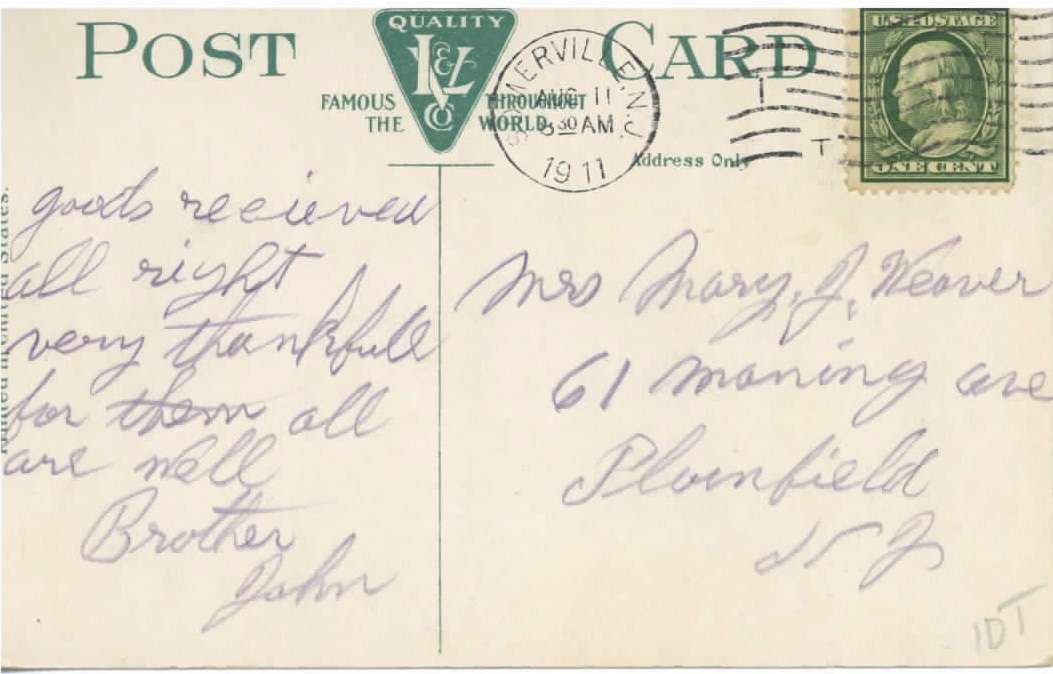 POST CARD
QUALITY
L&Co
FAMOUS THROUGHOUT
THE WORLD
SOMERVILLE, N.J.
AUG 11
8 30 AM
1911
Address Only
U.S. POSTAGE
ONE CENT
T
goods recieved
all right
very thankfull
for them all
are well
Brother
John
Mrs Mary. J. Weaver
61 Maning ave
Plainfield
N J
United States.
10T